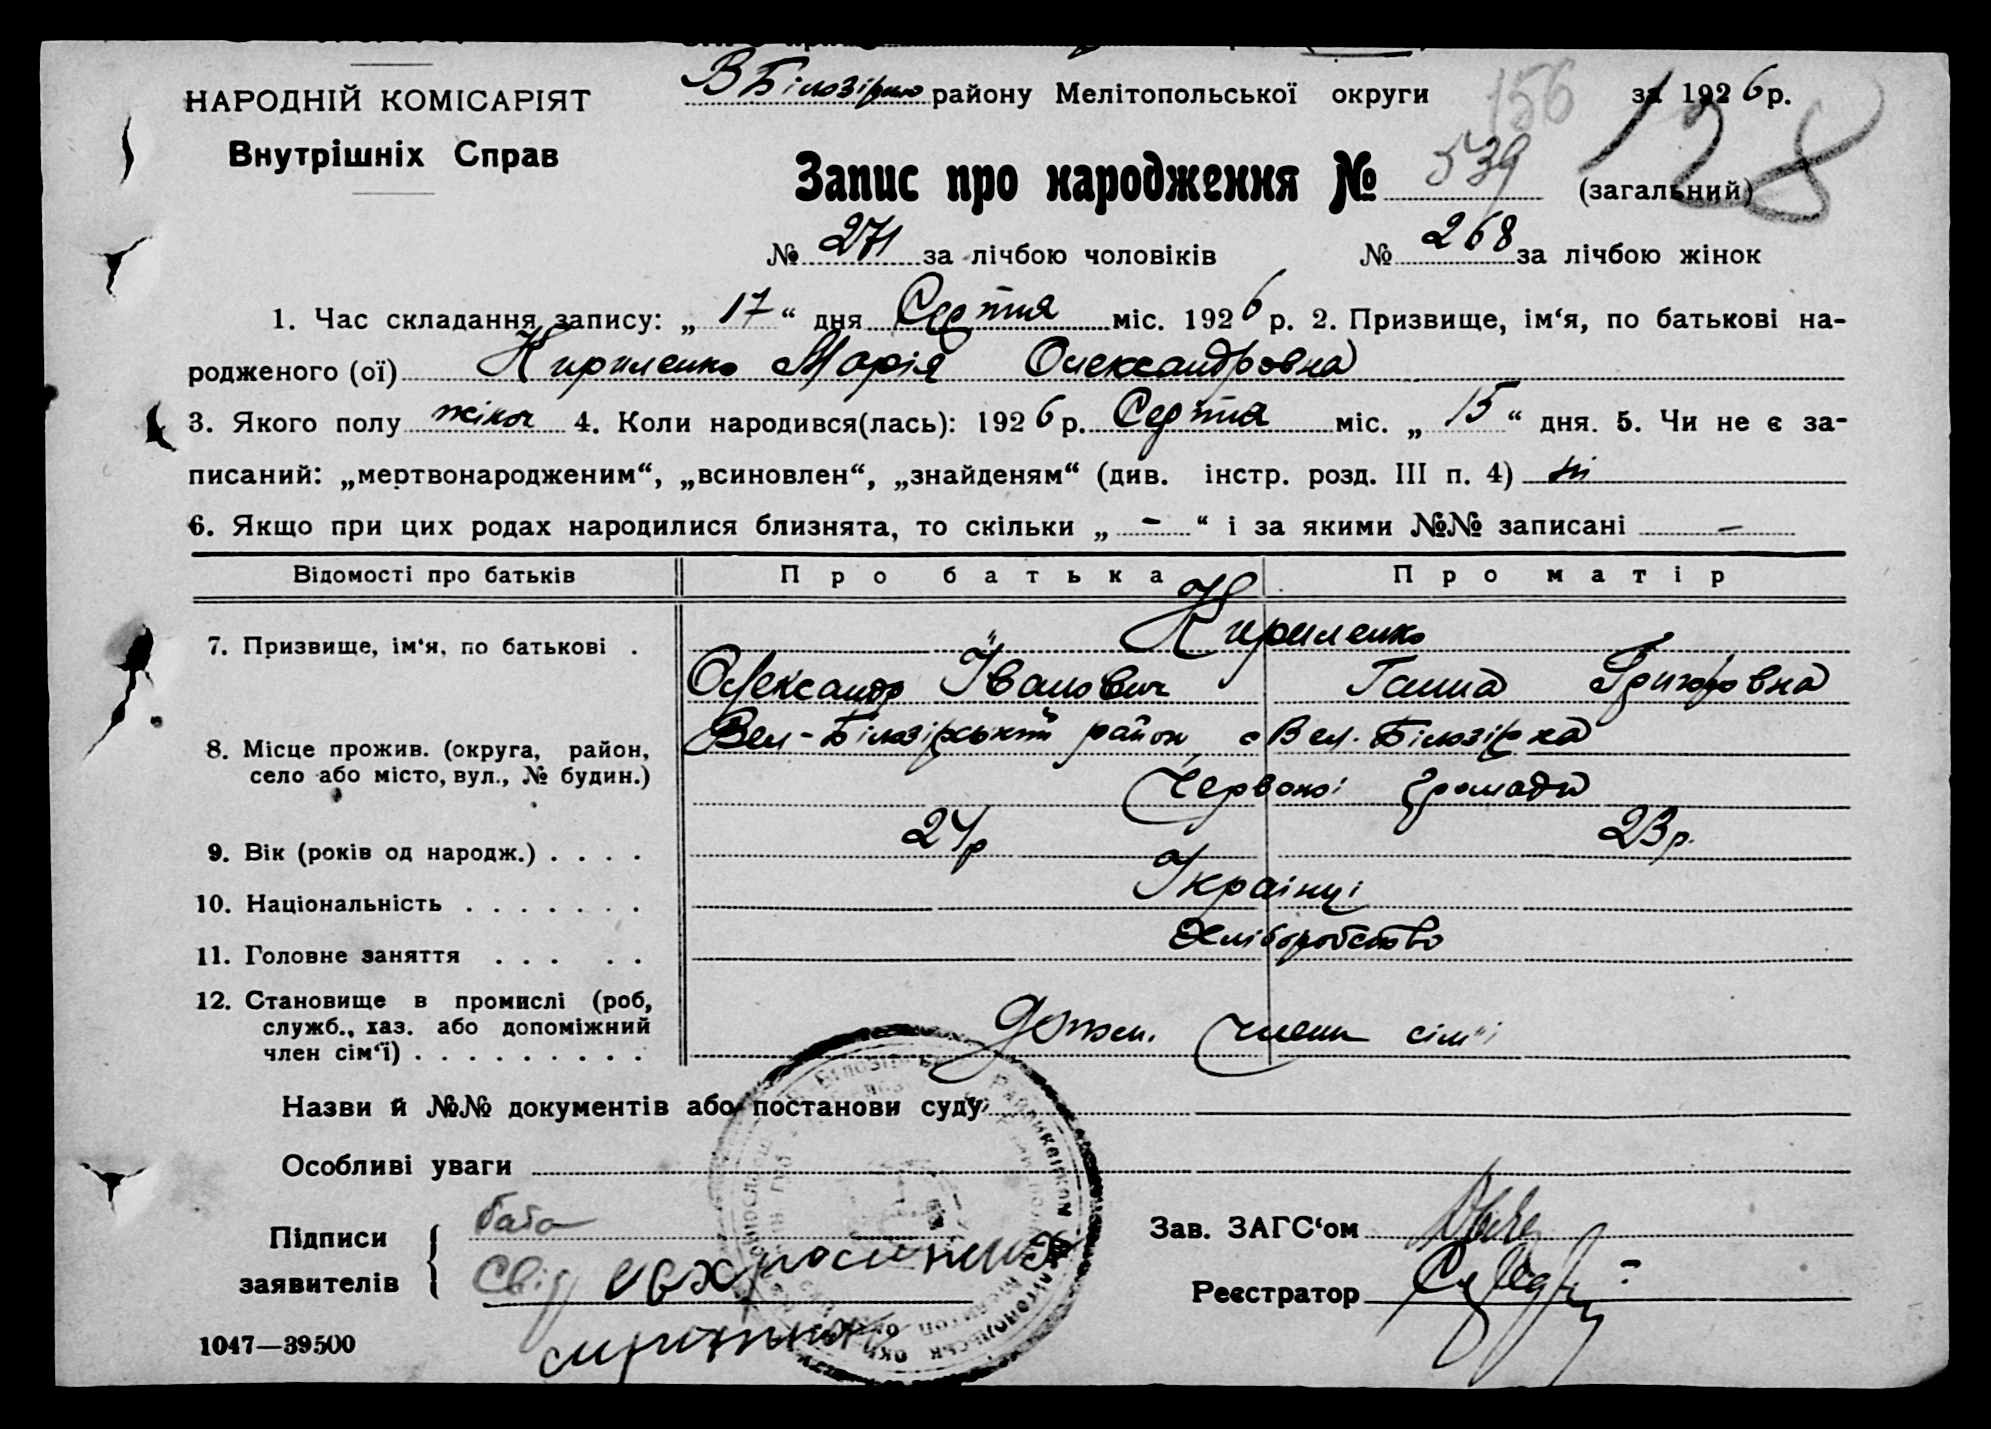 НАРОДНІЙ КОМІСАРІЯТ
Внутрішніх Справ
В Білозірсько району Мелітопольської округи за 1926 р.
156
128
Запис про народження № 539 (загальний)
№ 271 за лічбою чоловіків № 268 за лічбою жінок
1. Час складання запису: „ 17 “ дня Серпня міс. 1926 р. 2. Призвище, ім‘я, по батькові на-
родженого (ої) Кириленко Марія Олександровна
3. Якого полу жіноч 4. Коли народився(лась): 1926 р. Серпня міс. „ 15 “ дня. 5. Чи не є за-
писаний: „мертвонародженим“, „всиновлен“, „знайденям“ (див. інстр. розд. III п. 4) ні
6. Якщо при цих родах народилися близнята, то скільки „ - “ і за якими №№ записані -
Відомості про батьків Про батька Про матір
Кириленко
7. Призвище, ім‘я, по батькові .
Олександр Іванович Ганна Григоровна
8. Місце прожив. (округа, район, Вел-Білозірський район с Вел. Білозірка
село або місто, вул., № будин.) Червоної громади
9. Вік (років од народж.) . . . . 24 р 23 р.
10. Національність . . . . . . . Українці
11. Головне заняття . . . . . Хліборобство
12. Становище в промислі (роб,
служб., хаз. або допоміжний
член сім‘ї) . . . . . . . . . член сім'ї
Назви й №№ документів або постанови суду
Особливі уваги
Підписи
заявителів
Зав. ЗАГС‘ом
Реєстратор
1047—39500